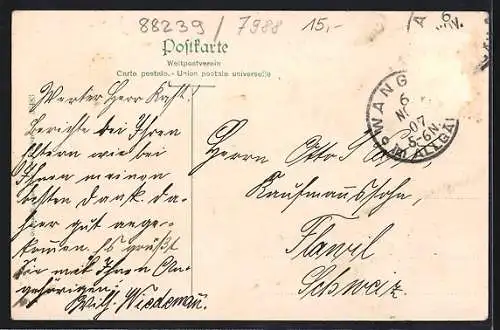 88239 / 7988 15,-
Postkarte
Weltpostverein
Carte postale. - Union postale universelle
WANGEN
6
NOV.
07
5-6N.
IM ALLGÄU
Werter Herr Kast!
Berichte bei Ihren
Eltern wie bei
Ihnen meinen
besten Dank. da-
hier gut ange-
kommen. Es grüßt
Sie mit Ihren An-
gehörigen
Wilh. Wiedemann.
Herrn Otto
Kaufmannssohn,
Flawil
Schweiz.